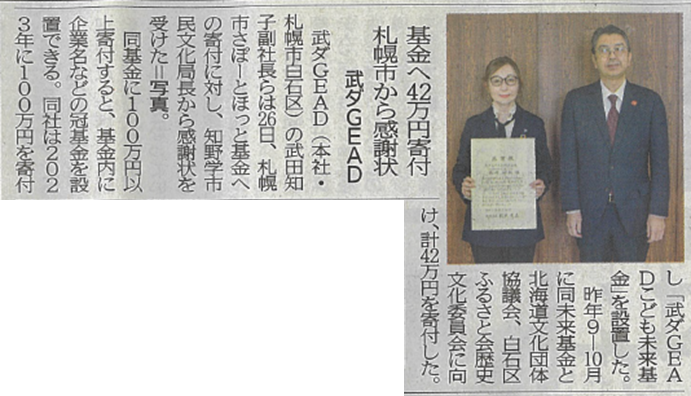 基金へ42万円寄付
札幌市から感謝状
武ダGEAD
武ダGEAD（本社・
札幌市白石区）の武田知
子副社長らは26日、札幌
市さぽーとほっと基金へ
の寄付に対し、知野学市
民文化局長から感謝状を
受けた＝写真。
同基金に100万円以
上寄付すると、基金内に
企業名などの冠基金を設
置できる。同社は202
3年に100万円を寄付
し「武ダGEA
Dこども未来基
金」を設置した。
昨年9―10月
に同未来基金と
北海道文化団体
協議会、白石区
ふるさと会歴史
文化委員会に向
け、計42万円を寄付した。
感謝状